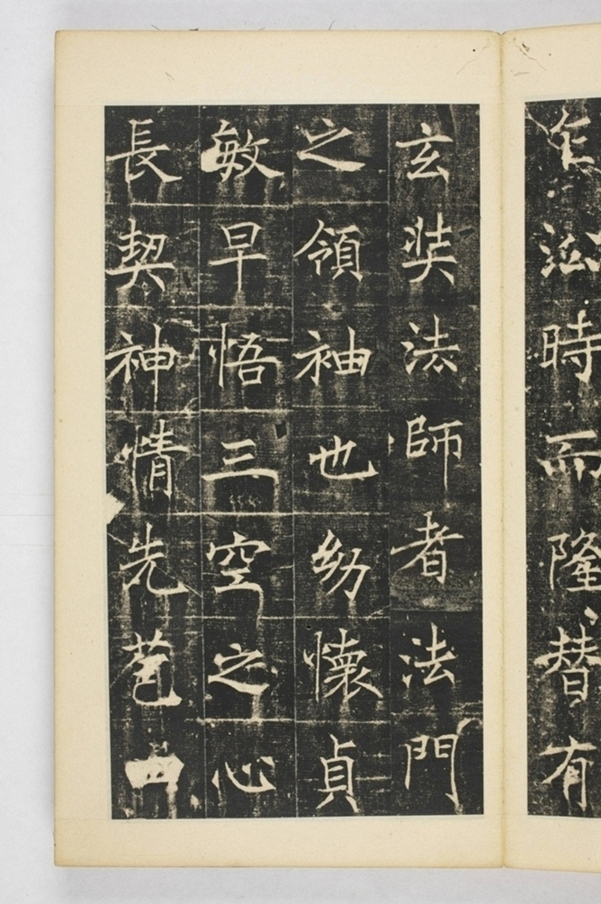 乖沿時而隆替有
玄奘法師者法門
之領袖也幼懷貞
敏早悟三空之心
長契神情先苞四